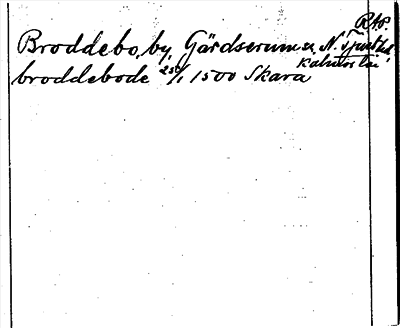 RAP.
Broddebo, by, Gärdserums sn, N. Tjust hd
Kalmar län
broddebode 25/1 1500 Skara